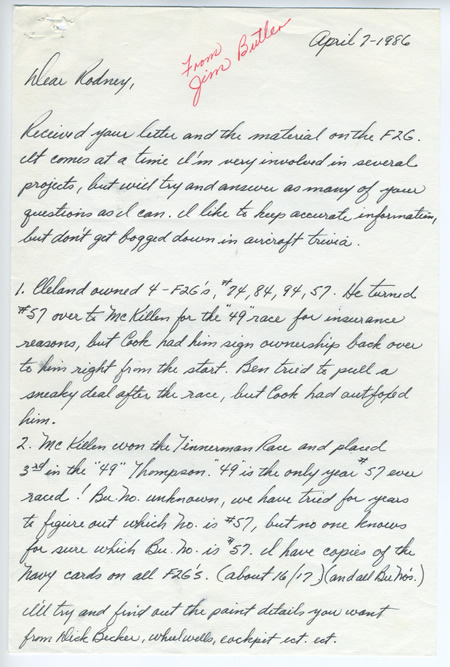 April 7-1986
From
Jim Butler
Dear Rodney,
Received your letter and the material on the F2G.
It comes at a time I'm very involved in several
projects, but will try and answer as many of your
questions as I can. I like to keep accurate information,
but don't get bogged down in aircraft trivia.
1. Cleland owned 4-F2G's, #74, 84, 94, 57. He turned
#57 over to McKillen for the "49" race for insurance
reasons, but Cook had him sign ownership back over
to him right from the start. Ben tried to pull a
sneaky deal after the race, but Cook had outfoxed
him.
2. McKillen won the Tinnerman Race and placed
3rd in the "49" Thompson. "49" is the only year #57 ever
raced! Bu. No. unknown, we have tried for years
to figure out which No. is #57, but no one knows
for sure which Bu. No. is #57. I have copies of the
Navy cards on all F2G's. (about 16/17) (and all Bu No's.)
I'll try and find out the paint details you want
from Dick Becker, wheel wells, cockpit ect. ect.